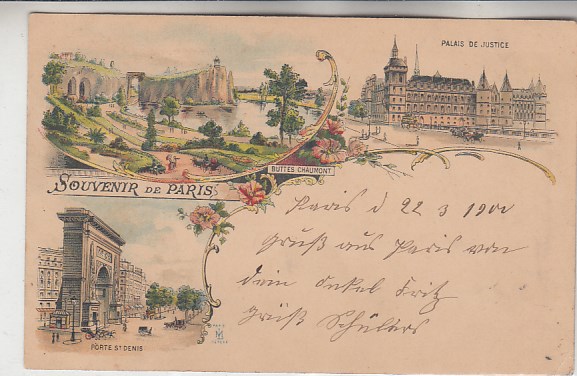 PALAIS DE JUSTICE
BUTTES CHAUMONT
SOUVENIR DE PARIS
Paris d 22 3 1900
Gruß aus Paris von
dein Onkel Fritz
grüß Schülers
PORTE ST DENIS